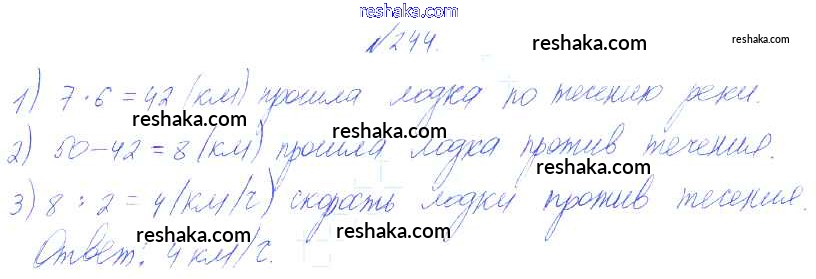 reshaka.com
№244.
reshaka.com
reshaka.com
1) 7·6=42 (км) прошла лодка по течению реки.
reshaka.com
2) 50-42=8 (км) прошла лодка против течения.
reshaka.com
reshaka.com
3) 8:2=4 (км/ч) скорость лодки против течения.
reshaka.com
Ответ: 4 км/ч.
reshaka.com